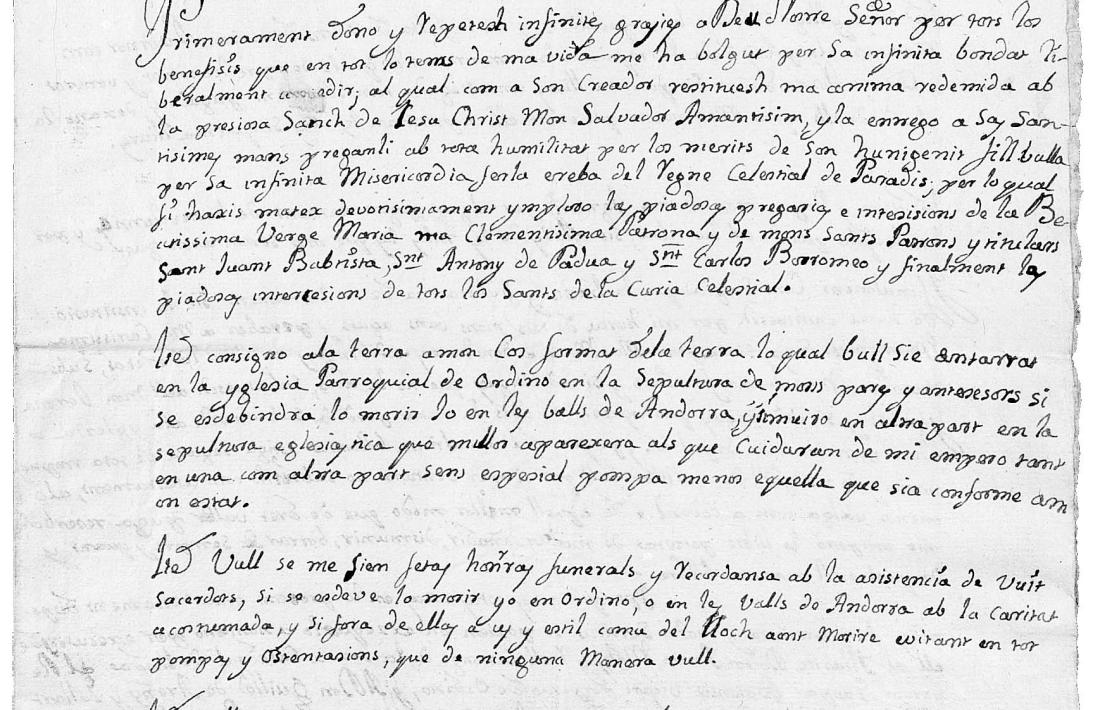 Primerament dono y repetesh infinites grasies a Deu Nostre Señor per tots los
benefisis que en tot lo tems de ma vida me ha bolgut per sa infinita bondat li-
beralment consedir; al qual com a son Creador restituesh ma anima redemida ab
la presiosa Sanch de Iesu Christ Mon Salvador Amantisim, y la enrego a Sas San-
tisimes mans preganli ab tota humilitat per los merits de son hunigenit fill bulla
per sa infinita Misericordia ferla ereba del Regne Celestial de Paradis; per lo qual
fi haxis matex devotisiniament ymploro las piadosas pregaries e intersisions de la Be-
atissima Verge Maria ma Clementisima Patrona y de mons Sants Patrons y titulars
Sant Juant Babtista, Snt Antony de Padua y Snt Carlos Borromeo y finalment las
piadosas intercesions de tots los Sants de la Curia Celestial.
Ite consigno a la terra a mon Cos format dela terra lo qual bull sie antarrat
en la yglesia Parroquial de Ordino en la Sepultura de mons pares y antesesors si
se esdebindra lo morir Io en les balls de Andorra, y si muiro en altra part en la
sepultora eglesiastica que millor aparexera als que Cuidaran de mi empero tant
en una com altra part sens espesial pompa menos equella que sia conforme a m
on estat.
Ite Vull se me sien fetas honrras funerals y recordansa ab la asistencia de Vuit
Sacerdots, si se esdeve lo morir yo en Ordino, o en les Valls de Andorra ab la caritat
acostumada, y si fora de ellas a us y estil comu del lloch aont Morire evitant en tot
pompas y Ostentasions, que de ninguna Manera vull.